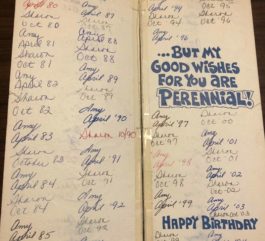 April 80
Sharon
Oct 80
Amy
April 81
Sharon
Oct 81
Amy
April 82
Sharon
Oct 82
Amy
April 83
Sharon
October 83
Amy
April 84
Sharon
Oct 84
Amy
April 85
Amy
April 88
Sharon
Oct 88
Amy
April 89
Sharon
Oct 89
Amy
April '90
Sharon 10/90
Amy
April '91
Sharon
Oct 91
Amy
April '92
Sharon
Oct 92
April '94
Sharon
Oct 94
Amy
April '96
Oct 95
Sharon
Oct 96
...BUT MY
GOOD WISHES
FOR YOU ARE
PERENNIAL!
Amy
April '97
Sharon
Oct 97
Amy
April '98
Sharon
Oct 98
Amy
April 99
Sharon
Oct 99
Oct 00
Amy
April '01
Sharon
Oct 01
Amy
April '02
Sharon
Oct 02
Amy
April '03
HAPPY BIRTHDAY